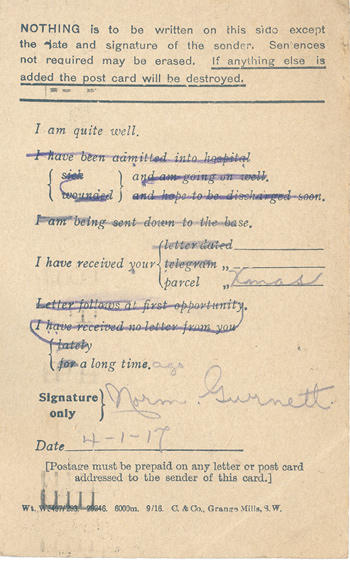 NOTHING is to be written on this side except
the date and signature of the sender. Sentences
not required may be erased. If anything else is
added the post card will be destroyed.
I am quite well.
I have been admitted into hospital
{ sick } and am going on well.
{ wounded } and hope to be discharged soon.
I am being sent down to the base.
letter dated
I have received your { telegram „
parcel „ Xmas
Letter follows at first opportunity.
I have received no letter from you
{ lately
{ for a long time. ago
Signature } Norm. Gurnett.
only
Date 4-1-17
[Postage must be prepaid on any letter or post card
addressed to the sender of this card.]
Wt. 29246. 6000m. 9/16. C. & Co., Grange Mills, S.W.